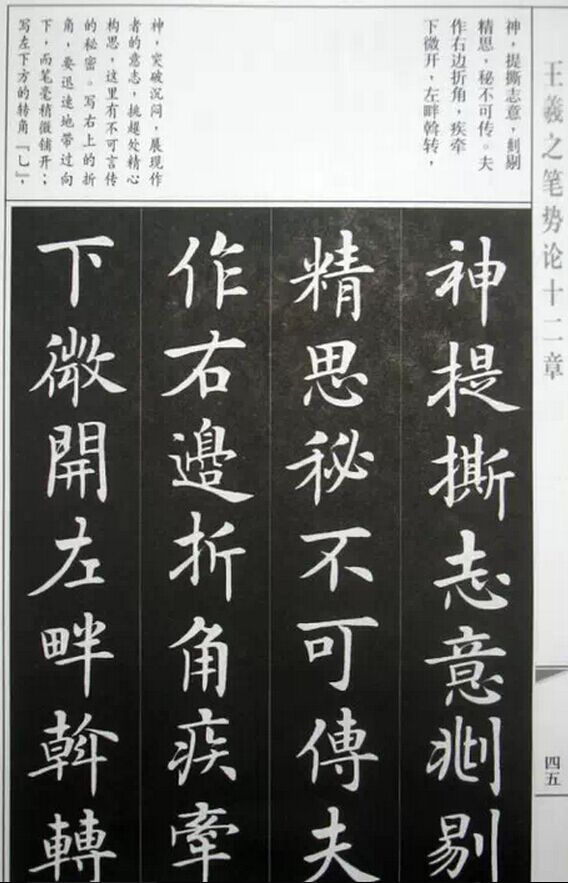 王羲之笔势论十二章
四五
神，提撕志意，剔
精思，秘不可传。夫
作右边折角，疾牵
下微开，左畔斡转，
神，突破沉闷，展现作
者的意志，挑处精心
构思，这里有不可言传
的秘密。写右上的折
角，要迅速地带过向
下，而笔毫稍微铺开；
写左下方的转角『乚』，
神提撕志意剔
精思秘不可傳夫
作右邊折角疾牽
下微開左畔斡轉